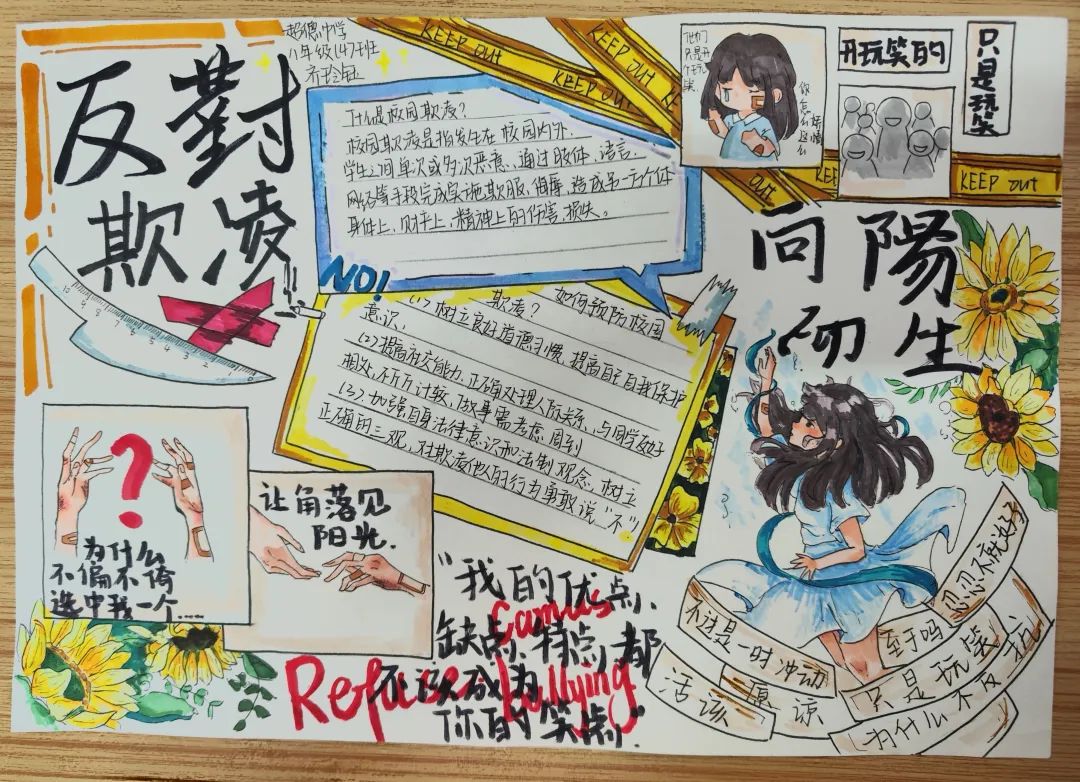 反對
欺凌
八年级(4)班
KEEP OUT
KEEP OUT
KEEP OUT
什么是校园欺凌?
校园欺凌是指发生在校园内外、
学生之间单次或多次恶意、通过肢体、语言、
网络等手段完成实施欺服、侮辱、造成另一方个体
身体上、财产上、精神上的伤害、损失。
NO!
他们
只是开
个玩
笑
你
怎么
这么
矫情
开玩笑的
只是玩笑
OUT
KEEP OUT
向陽
而生
欺凌? 如何预防校园
(1)树立良好道德习惯,提高自主自我保护
意识、
(2)提高社交能力,正确处理人际关系,与同学友好
相处,不斤斤计较,做事需考虑周到
(3)加强自身法律意识和法制观念,树立
正确的三观,对欺凌他人的行为勇敢说“不”!
10 9 9 8 7 6 5 4 3 2 1 0
?
为什么
不偏不倚
选中我一个....
让角落见
阳光.
“我的优点、
缺点、特点,都
不该成为
你的笑点”
Refuse
bullying
忍忍不就好了
不过是一时冲动
至于吗
活该
原谅
只是玩笑
为什么不反抗